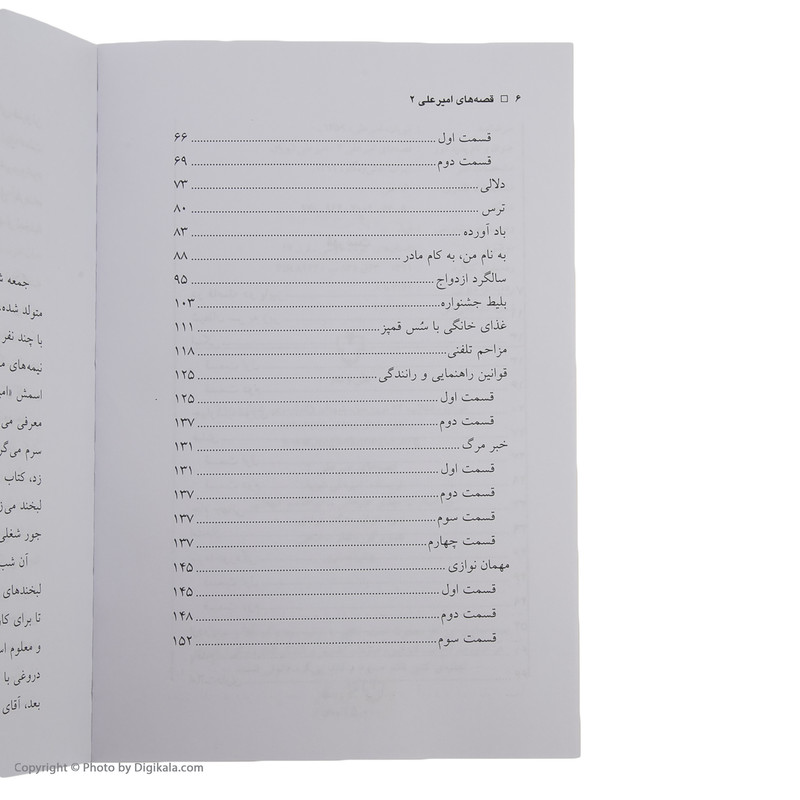 ۶ □ قصه‌های امیرعلی ۲
قسمت اول ۶۶
قسمت دوم ۶۹
دلالی ۷۳
ترس ۸۰
باد آورده ۸۳
به نام من، به کام مادر ۸۸
سالگرد ازدواج ۹۵
بلیط جشنواره ۱۰۳
غذای خانگی با سُس قمپز ۱۱۱
مزاحم تلفنی ۱۱۸
قوانین راهنمایی و رانندگی ۱۲۵
قسمت اول ۱۲۵
قسمت دوم ۱۳۷
خبر مرگ ۱۳۱
قسمت اول ۱۳۱
قسمت دوم ۱۳۷
قسمت سوم ۱۳۷
قسمت چهارم ۱۳۷
مهمان نوازی ۱۴۵
قسمت اول ۱۴۵
قسمت دوم ۱۴۸
قسمت سوم ۱۵۲
جمعه
متولد شده،
با چند نفر
نیمه‌های
اسمش
معرفی می
سرم
زد، کتاب
لبخند
جور شغلی
آن شب
لبخندهای
تا برای
و معلوم
دروغی با
بعد، آقای
Copyright © Photo by Digikala.com